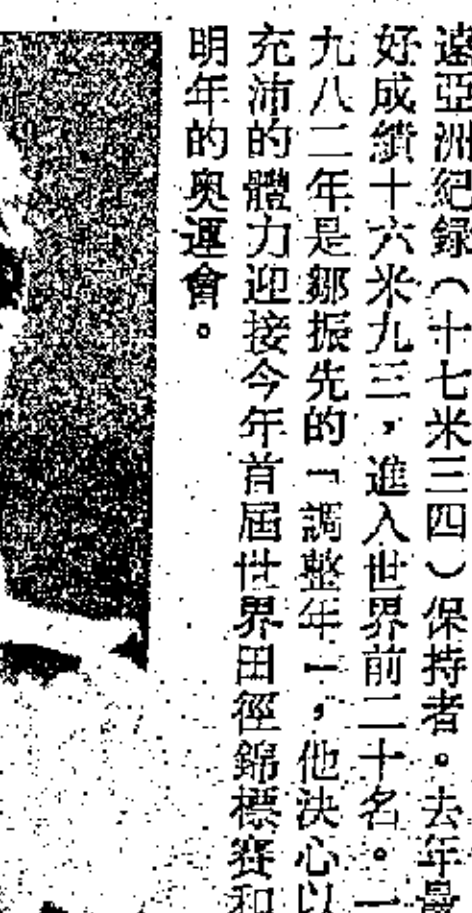 遠亞洲紀録（十七米三四）保持者。去年最
好成績十六米九三，進入世界前二十名。一
九八二年是鄒振先的「調整年」，他決心以
充沛的體力迎接今年首屆世界田徑錦標賽和
明年的奥運會。